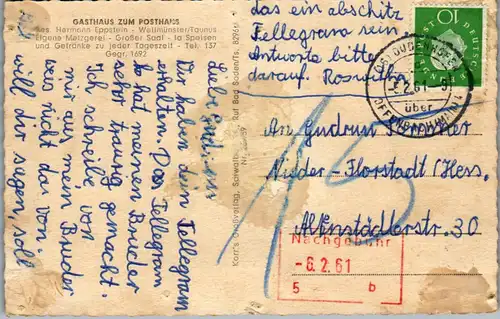 GASTHAUS ZUM POSTHAUS
Bes. Hermann Eppstein - Weilmünster/Taunus
Eigene Metzgerei - Großer Saal - Ia Speisen
und Getränke zu jeder Tageszeit - Tel. 137
Gegr. 1692
Liebe Gudrun
Dir haben dein Tellegram
erhalten. Das Tellegram
so hat meinen Bruder
sehr traurig gemacht.
Ich schreibe von
mir aus, mein Bruder
weis nicht das von
will dir sagen, soll
das ein abschitz
Tellegram sein
Antworte bitte
darauf. Roswitha
Kort's Großverlag, Bad Soden/Ts.
DEUTSCHE
10
2.61
über
OFFENBACH/MAIN 1
An Gudrun
Nieder-Florstadt (Hess.
Altenstädterstr. 30
15
Nachgebühr
-6.2.61
5 b